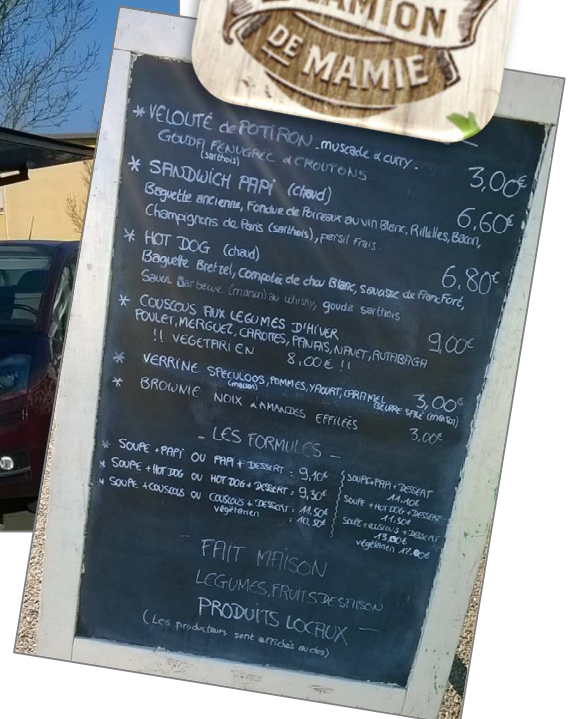 CAMION
DE MAMIE
* VELOUTÉ de POTIRON _ muscade & curry .
GOUDA FENUGREC & CROUTONS 3,00€
(sarthois)
* SANDWICH PAPI (chaud) 6,60€
Baguette ancienne, Fondue de Poireaux au vin Blanc, Rillettes, Bacon,
Champignons de Paris (sarthois), persil frais.
* HOT DOG (chaud) 6.80€
Baguette Bretzel, compotée de chou Blanc, saucisse de Francfort,
Sauce Barbecue (maison) au whisky, gouda sarthois
* COUSCOUS AUX LEGUMES D'HIVER 9,00€
POULET, MERGUEZ, CAROTTES, PANAIS, NAVET, RUTABAGA
!! VEGETARIEN 8,00€ !!
* VERRINE SPECULOOS, POMMES, YAOURT, CARAMEL 3,00€
(maison) (BEURRE SALÉ (maison)
* BROWNIE NOIX & AMANDES EFFILÉES 3,00€
- LES FORMULES -
* SOUPE + PAPI OU PAPI + DESSERT : 9,10€
* SOUPE + HOT DOG OU HOT DOG + DESSERT : 9,30€
* SOUPE + COUSCOUS OU COUSCOUS + DESSERT : 11,50€
végétarien = 10,50€
SOUPE + PAPI + DESSERT
11.10€
SOUPE + HOT DOG + DESSERT
11.30€
SOUPE + COUSCOUS + DESSERT
13.00€
végétarien 12.00€
- FAIT MAISON
LEGUMES, FRUITS DE SAISON
PRODUITS LOCAUX -
(Les producteurs sont affichés au dos)